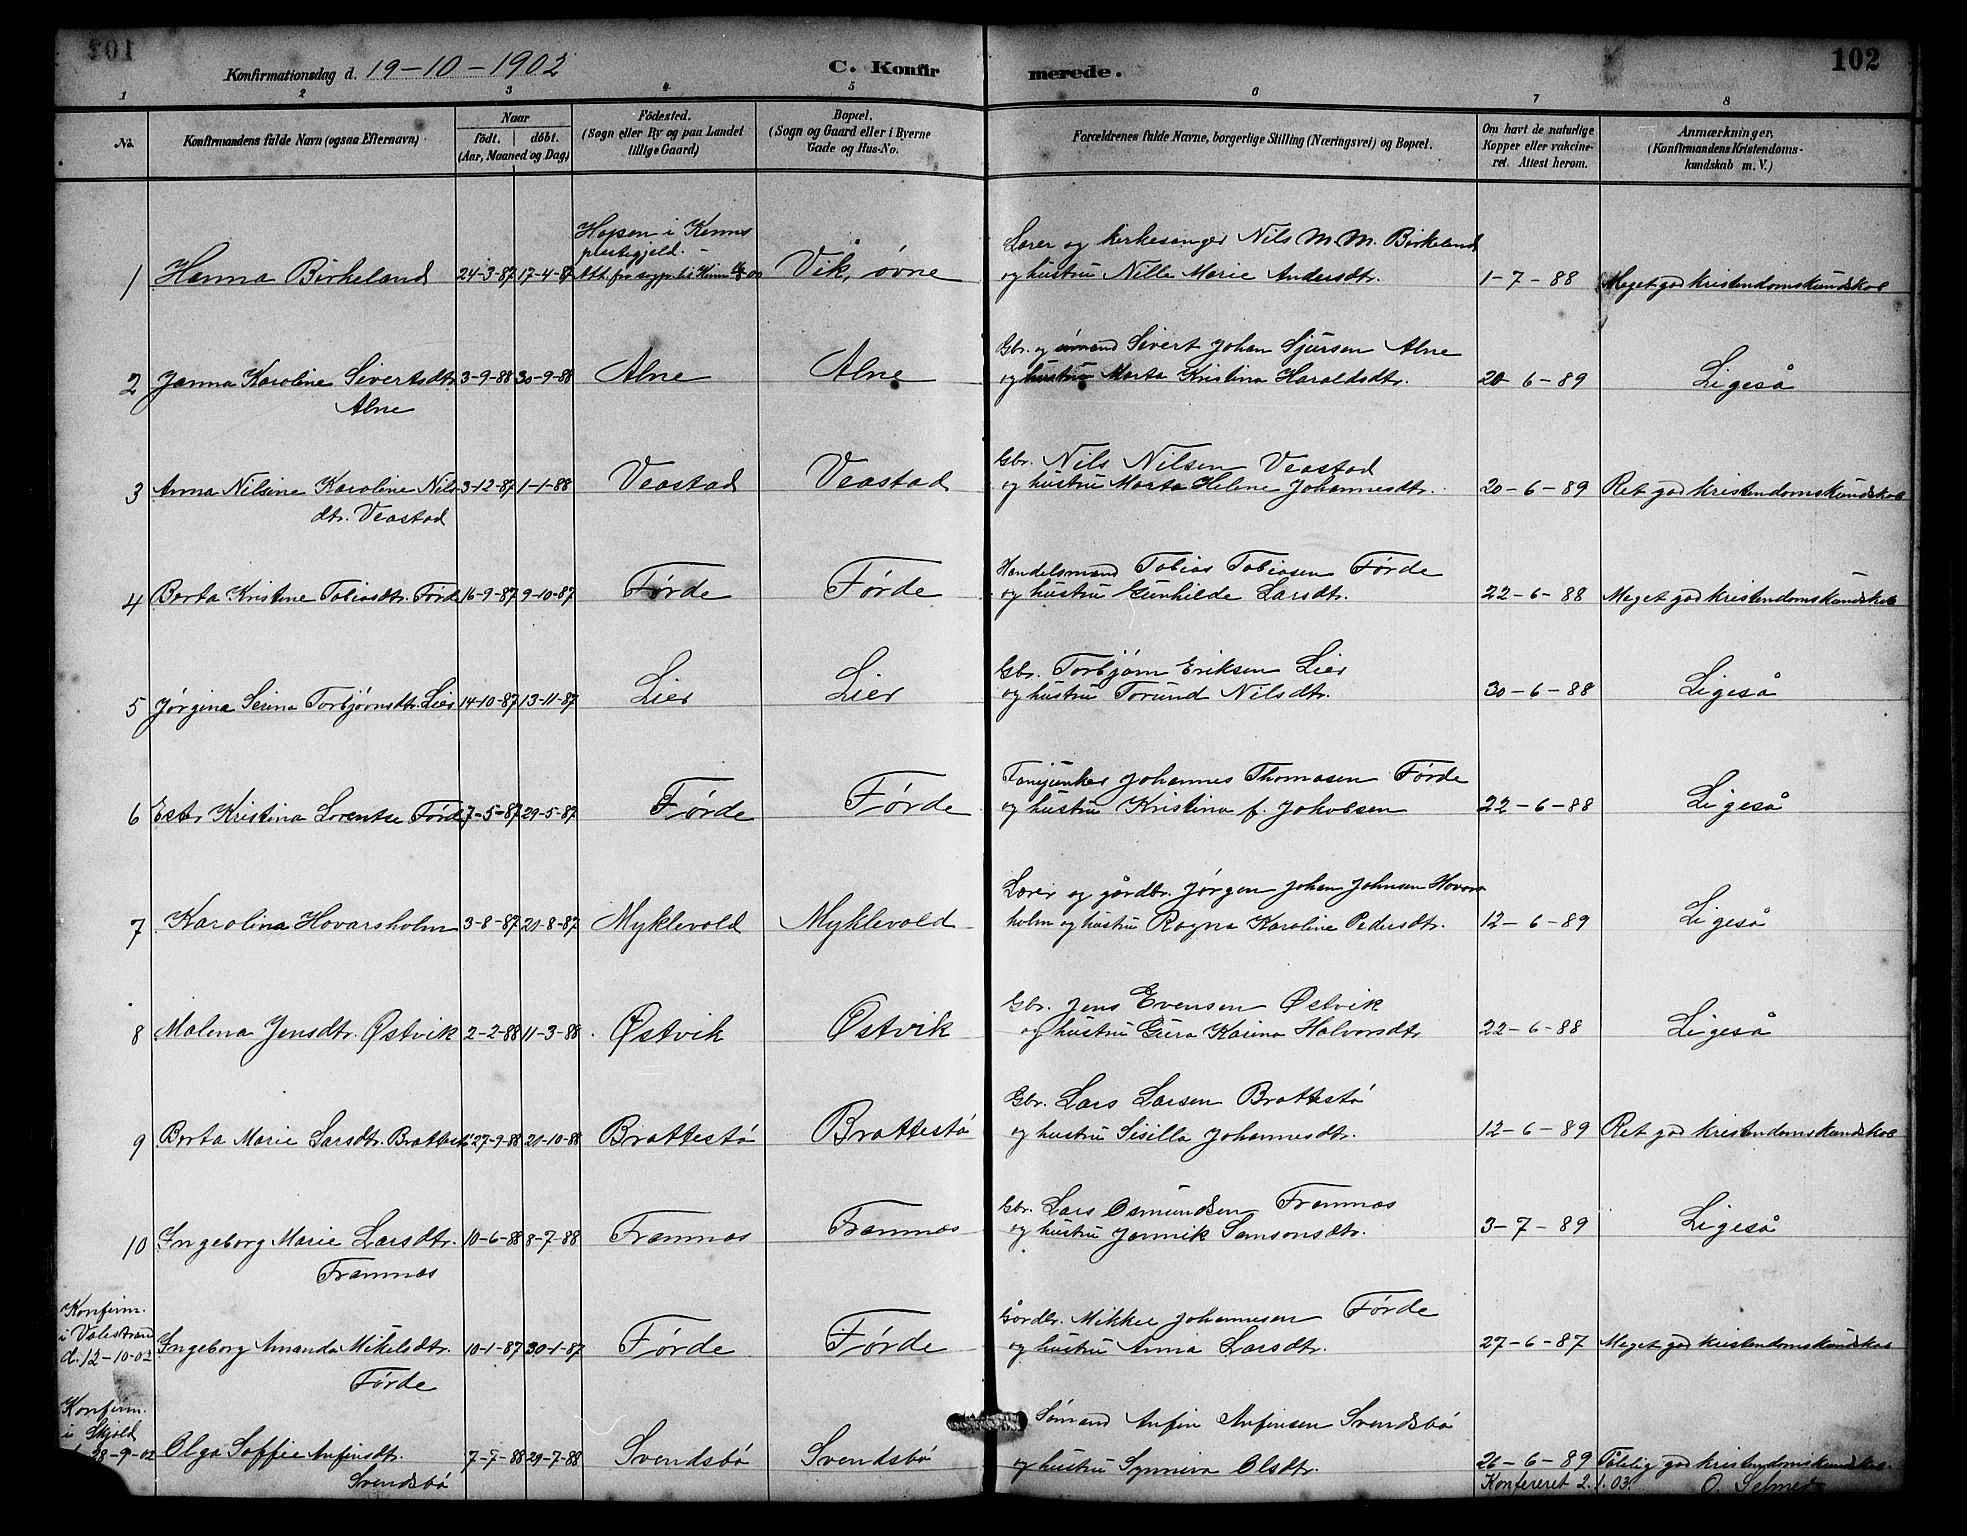 102
Konfirmationsdag d. 19-10-1902
C. Konfirmerede.
1 2 3 4 5 6 7 8
No.
Konfirmandens fulde Navn (ogsaa Efternavn)
Naar
født, døbt.
(Aar, Maaned og Dag)
Fødested.
(Sogn eller By og paa Landet
tillige Gaard)
Bopæl.
(Sogn og Gaard eller i Byerne
Gade og Hus-No.
Forældrenes fulde Navne, borgerlige Stilling (Næringsvei) og Bopæl.
Om havt de naturlige
Kopper eller vakcine-
ret. Attest herom.
Anmærkninger.
(Konfirmandens Kristendoms-
kundskab m. V.)
1 Hanna Birkeland 24-3-87 17-4-87
Hopen i Kinns
prestegjeld.
Vik, øvne
Lærer og kirkesanger Nils M. M. Birkeland
og hustru Nille Marie Andersdtr.
1-7-88 Meget god kristendomskundskab
2 Janna Karoline Sivertsdtr.
Alne
3-9-88 30-9-88 Alne Alne
Gbr. og Sivert Johan Sjursen Alne
og hustru Marta Kristina Haraldsdtr.
20-6-89 Ligeså
3 Anna Nilsine Karoline Nils-
dtr. Veastad
3-12-87 1-1-88 Veastad Veastad
Gbr. Nils Nilsen Veastad
og hustru Marta Helene Johannesdtr.
20-6-89 Ret god kristendomskundskab
4 Berta Kristine Tobiasdtr. Førde 16-9-87 9-10-87 Førde Førde
Handelsmand Tobias Tobiasen Førde
og hustru Gunhilde Larsdtr.
22-6-88 Meget god kristendomskundskab
5 Jørgine Serina Torbjørnsdtr. Lier 14-10-87 13-11-87 Lier Lier
Gbr. Torbjørn Eriksen Lier
og hustru Torund Nilsdtr.
30-6-88 Ligeså
6 Ester Kristina Lorentse Førde 7-5-87 29-5-87 Førde Førde
Fanejunker Johannes Thomasen Førde
og hustru Kristina f. Jakobsen
22-6-88 Ligeså
7 Karolina Hovarsholm 3-8-87 21-8-87 Myklevold Myklevold
Lærer og gårdbr. Jørgen Johan Johnsen Hovars-
holm og hustru Ragna Karoline Pedersdtr.
12-6-89 Ligeså
8 Malena Jensdtr. Østvik 2-2-88 11-3-88 Østvik Østvik
Gbr. Jens Evensen Østvik
og hustru Gura Karina Halvorsdtr
22-6-88 Ligeså
9 Berta Marie Larsdtr. Brattestø 27-9-88 21-10-88 Brattestø Brattestø
Gbr. Lars Larsen Brattestø
og hustru Sisilla Johannesdtr.
12-6-89 Ret god kristendomskundskab
10 Ingeborg Marie Larsdtr.
Framnæs
10-6-88 8-7-88 Framnæs Framnæs
Gbr. Lars Osmundsen Framnæs
og hustru Jannik Samsonsdtr.
3-7-89 Ligeså
Konfirm.
i Valestrand
d. 12-10-02
Ingeborg Amanda Mikelsdtr.
Førde
10-1-87 30-1-87 Førde Førde
Gårdbr. Mikkel Johannesen Førde
og hustru Anna Larsdtr.
27-6-87 Meget god kristendomskundskab
Konfirm.
i Skjold
28-9-02
Olga Soffie Anfinsdtr.
Svendsbø
7-7-88 29-7-88 Svendsbø Svendsbø
Sømand Anfin Anfinsen Svendsbø
og hustru Synneva Olsdtr.
26-6-89 Tålelig god kristendomskundskab.
Konfereret 2.1.03. O. Selmer